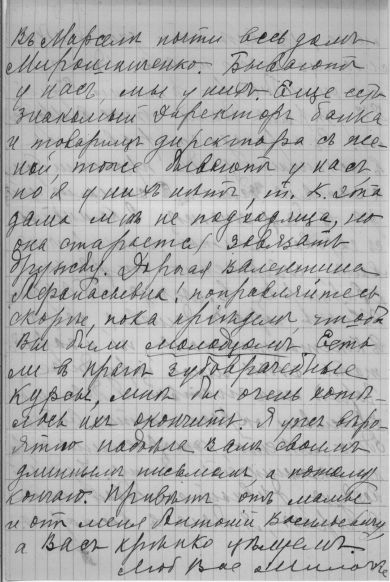 Въ Марсели почти весь домъ
Мирошниченко. Бываютъ
у насъ, мы у нихъ. Еще есть
знакомый директоръ банка
и товарищъ директора съ же-
ной, тоже бываютъ у насъ
но я у нихъ нѣтъ, т. к. эта
дама мнѣ не подходяща, но
она старается завязать
дружбу. Дорогая Валентина
поправляйтесь
скорѣе, пока чтобы
Вы были молодцомъ. Есть
ли в Прагѣ зубоврачебные
курсы, мнѣ бы очень хотѣ-
лось ихъ окончить. Я уже вѣро-
ятно надоѣла Вамъ своимъ
длиннымъ письмомъ, а потому
кончаю. Привѣтъ отъ мамы
и от меня Антонію Васильевичу
а Васъ крѣпко цѣлуемъ.
Люб Вас